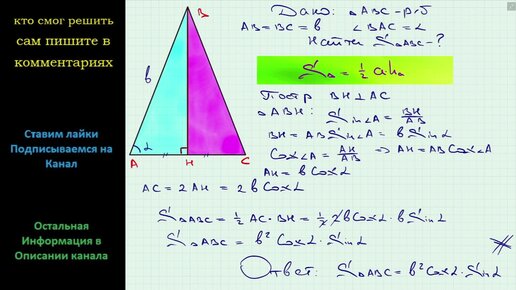 кто смог решить
сам пишите в
комментариях
Ставим лайки
Подписываемся на
Канал
Остальная
Информация в
Описании канала
B
b
α
A
H
C
Дано: △ABC - р/б
AB=BC=b ∠BAC=α
Найти S△ABC-?
S△ = ½ a·hₐ
Постр BH⊥AC
△ABH: Sin∠A = BH/AB
BH = AB Sin∠A = b Sinα
Cos∠A = AH/AB ⇒ AH=AB Cos∠A
AH = b Cosα
AC = 2AH = 2b Cosα
S△ABC = ½ AC·BH = ½·2b Cosα · b Sinα
S△ABC = b² Cosα · Sinα
Ответ: S△ABC = b² Cosα · Sinα